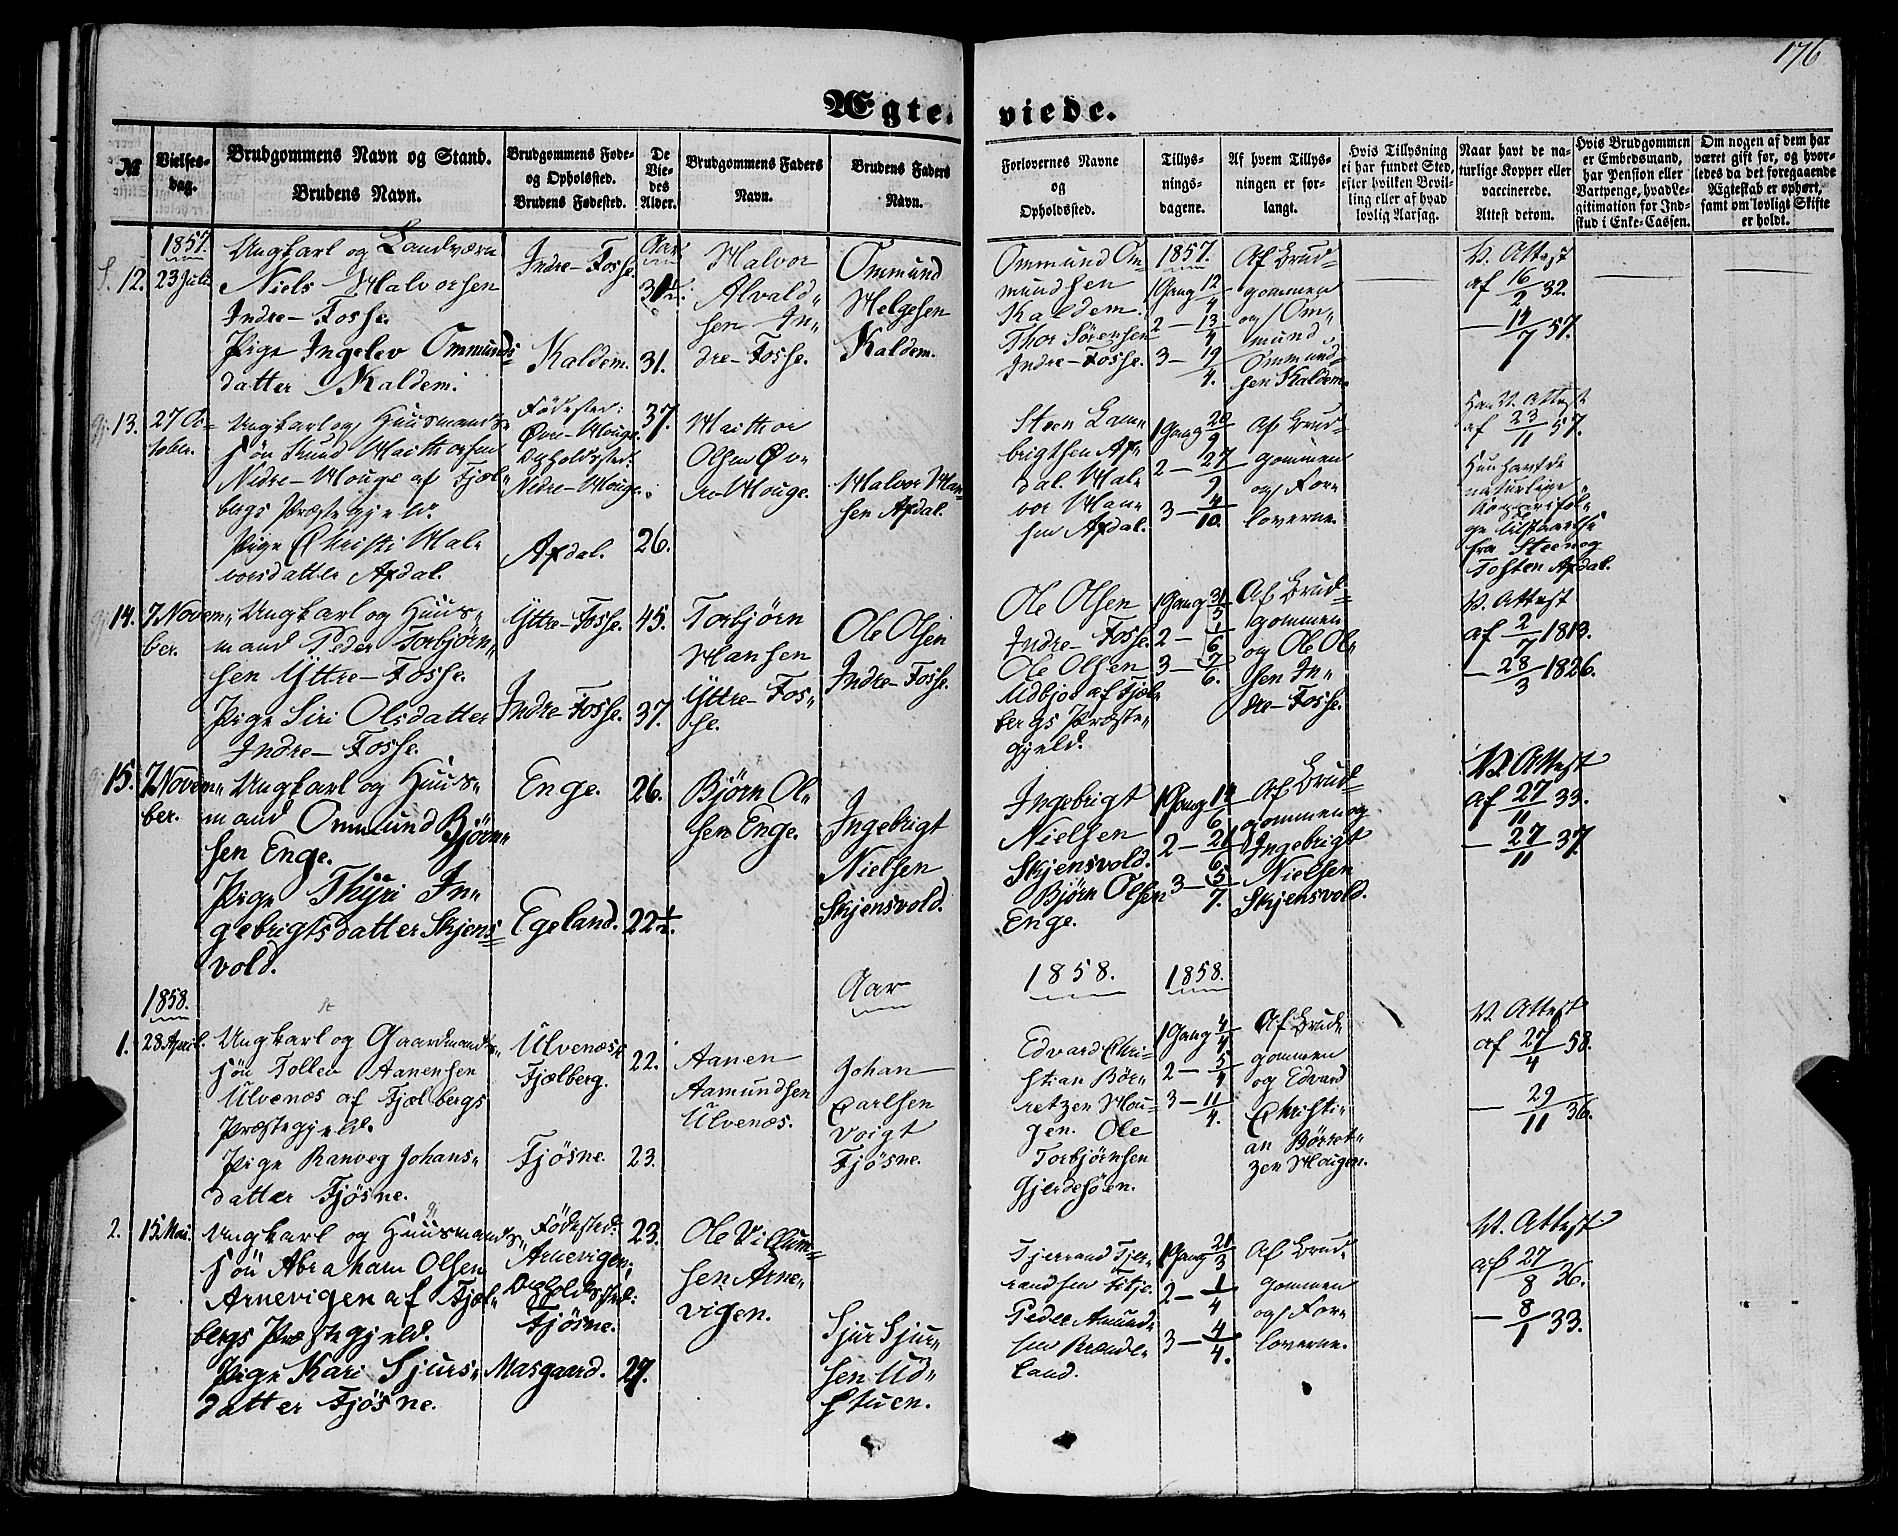 176
Ægte-
viede.
№
Vielses-
dag.
Brudgommens Navn og Stand.
Brudens Navn.
Brudgommens Føde-
og Opholdssted.
Brudens Fødested.
De
Vie-
des
Alder.
Brudgommens Faders
Navn.
Brudens Faders
Navn.
Forlovernes Navne
og
Opholdssted.
Tillys-
nings-
dagene.
Af hvem Tillys-
ningen er for-
langt.
Hvis Tillysning
ei har fundet Sted,
efter hvilken Bevil-
ling eller af hvad
lovlig Aarsag.
Naar havt de na-
turlige Kopper eller
vaccinerede.
Attest derom.
Hvis Brudgommen
er Embedsmand,
har Pension eller
Vartpenge, hvad Le-
gitimation for Ind-
skud i Enke-Cassen.
Om nogen af dem har
været gift før, og hvor-
ledes da det foregaaende
Ægteskab er ophørt,
samt om lovligt Skifte
er holdt.
1857.
12.
23 Juli
Ungkarl og Landværn
Niels Halvorsen
Indre-Fosse.
Pige Ingelev Ommunds-
datter Kaldem.
Indre-Fosse.
Kaldem.
Aar
31.
Halvor
Alvald-
sen In-
dre-Fosse.
Ommund
Helgesen
Kaldem.
Ommund Om-
mundsen
Kaldem.
Thor Sörensen
Indre-Fosse.
1857.
1 Gang 12/4
2 — 13/4
3 — 19/4.
Af Brud-
gommen
og Om-
mund
Ommund-
sen Kaldem.
V. Attest
af 16/2 32.
— 14/7 57.
13.
27 Oc-
tober.
Ungkarl og Huusmands-
sön Knud Haithorsen
Nedre-Houge af Fjel-
bergs Præstegjeld.
Pige Christi Hal-
vorsdatter Axdal.
Fødested:
Øvre-Houge.
Opholdssted:
Nedre-Houge.
Axdal.
37.
26.
Haithor
Olsen Øv-
re-Houge.
Halvor Han-
sen Axdal.
Steen Lam-
brigtsen Ax-
dal. Hal-
vor Han-
sen Axdal.
1 Gang 20/9
2 — 27/9
3 — 4/10.
Af Brud-
gommen
og For-
loverne.
Han V. Attest
af 23/11 57.
Hun havt de
naturlige
Kopper iföl-
ge Tilstaaelse
fra Steen og
Tosten Axdal.
14.
7 Novem-
ber.
Ungkarl og Huus-
mand Peder Torbjörn-
sen Yttre-Fosse.
Pige Siri Olsdatter
Indre-Fosse.
Yttre-Fosse.
Indre-Fosse.
45.
37.
Torbjörn
Hansen
Yttre-Fos-
se.
Ole Olsen
Indre-Fosse.
Ole Olsen
Indre-Fosse.
Ole Olsen
Udbjoe af Fjel-
bergs Præste-
gjeld.
1 Gang 31/5
2 — 1/6
3 — 7/6.
Af Brud-
gommen
og Ole Ol-
sen In-
dre-Fosse.
V. Attest
af 2/7 1813.
— 28/3 1826.
15.
7 Novem-
ber.
Ungkarl og Huus-
mand Ommund Björn-
sen Enge.
Pige Thyri In-
gebrigtsdatter Skjens-
vold.
Enge.
Egeland.
26.
22½.
Bjørn Ol-
sen Enge.
Ingebrigt
Nielsen
Skjensvold.
Ingebrigt
Nielsen
Skjensvold.
Bjørn Olsen
Enge.
1 Gang 14/6
2 — 21/6
3 — 5/7.
Af Brud-
gommen og
Ingebrigt
Nielsen
Skjensvold.
V. Attest
af 27/11 33.
— 27/11 37.
1858.
Aar
1858.
1858.
1.
28 April.
Ungkarl og Gaardmands-
sön Tollev Aanensen
Ulvenæs af Fjelbergs
Præstegjeld.
Pige Ranveg Johans-
datter Fjösne.
Ulvenæs
Fjelberg.
Fjösne.
22.
23.
Aanen
Aamundsen
Ulvenæs.
Johan
Carlsen
Voigt
Fjösne.
Edvard Chri-
stian Bör-
retzen Hou-
gen. Ole
Torbjörnsen
Gjerdesöen.
1 Gang 4/4.
2 — 5/4
3 — 11/4.
Af Brud-
gommen
og Edvard
Christi-
an Börret-
zen Hougen.
V. Attest
af 27/4 58.
— 29/11 36.
2.
15 Mai.
Ungkarl og Huusmands-
sön Abraham Olsen
Arnevigen af Fjel-
bergs Præstegjeld.
Pige Kari Sjurs-
datter Fjösne.
Fødested:
Arnevigen.
Opholdssted:
Fjösne.
Masgaard.
23.
27.
Ole Villum-
sen Arne-
vigen.
Sjur Sjur-
sen Ud-
stuen.
Tjerrand Tjer-
randsen Fitje.
Peder Amund-
sen Brende-
land.
1 Gang 21/3
2 — 1/4
3 — 4/4.
Af Brud-
gommen
og For-
loverne.
V. Attest
af 27/8 36.
— 8/1 33.